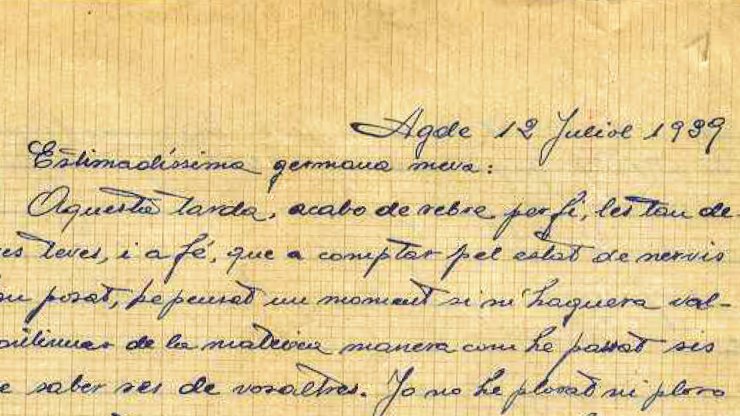 Agde 12 Juliol 1939
Estimadíssima germana meva:
Aquesta tarda, acabo de rebre per fi, les tan de-
es teves, i a fé, que a comptar pel estat de nervis
posat, he pensat un moment si m'haguera val-
de la mateixa manera com he passat sis
e saber res de vosaltres. Jo no he plorat ni ploro